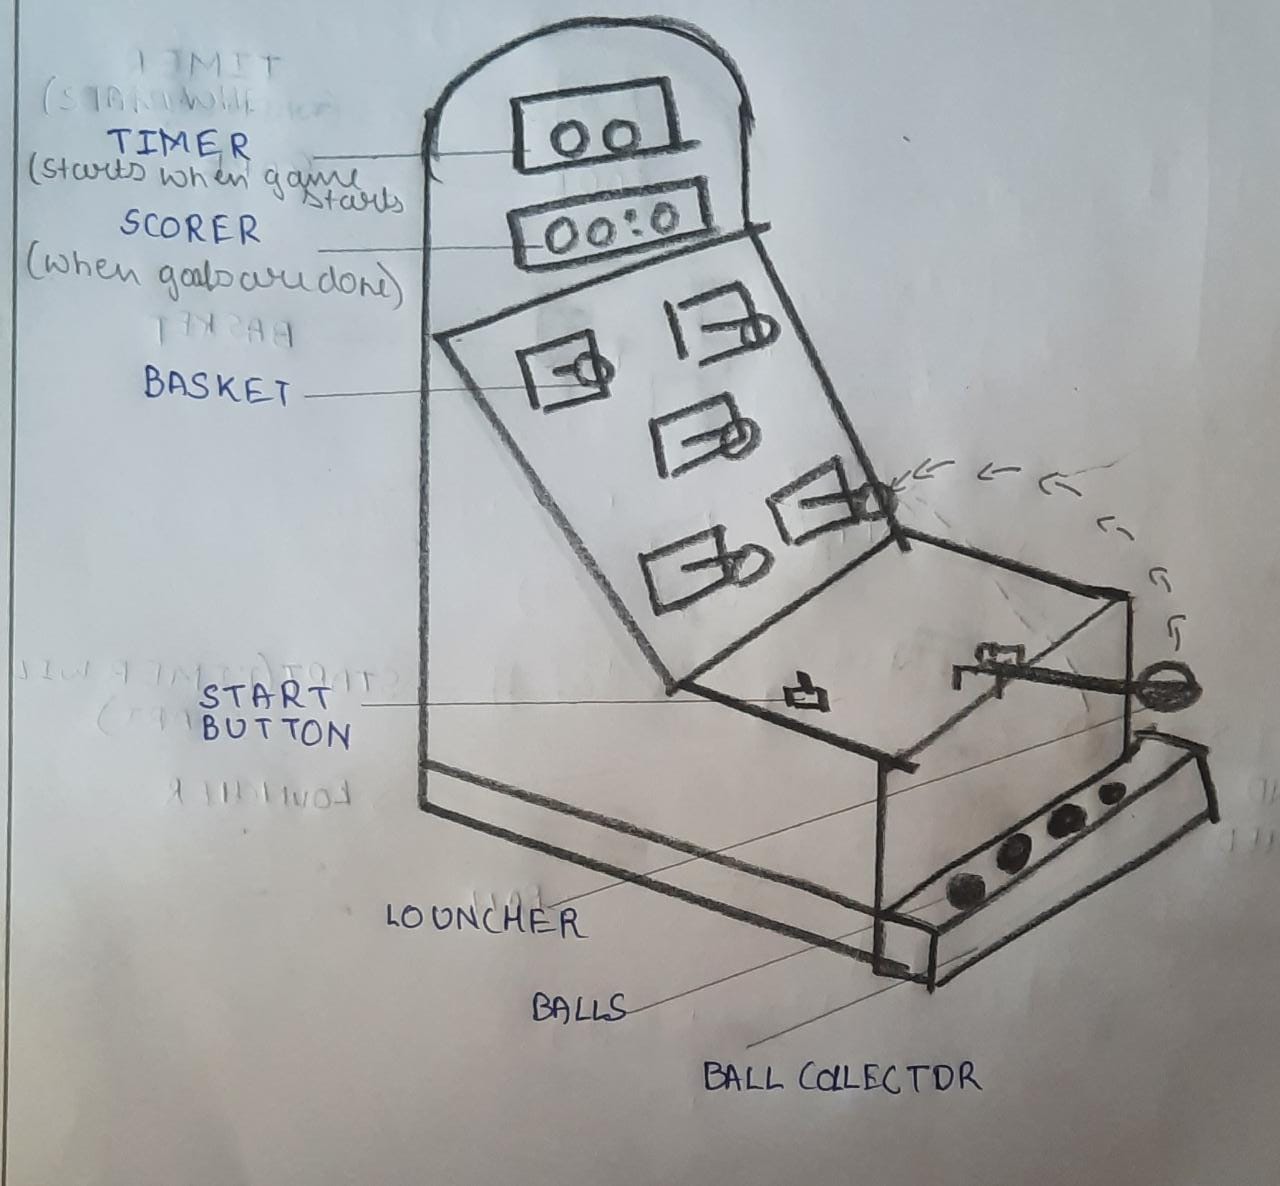 TIMER
(starts when game
starts
SCORER
(when goals are done)
BASKET
START
BUTTON
LOUNCHER
BALLS
BALL COLLECTOR
00
00:0